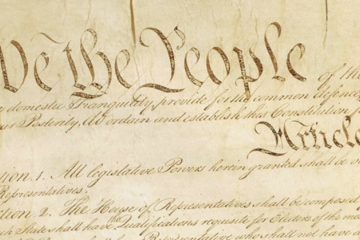 We the People of th
domestic Tranquility, provide for the common defence
Posterity, do ordain and establish this Constitution
Article
tion. 1. All legislative Powers herein granted shall be
Representatives.
tion. 2. The House of Representatives shall be composed
ch State shall have the Qualifications requisite for Electors of the mo
Representative who shall not have